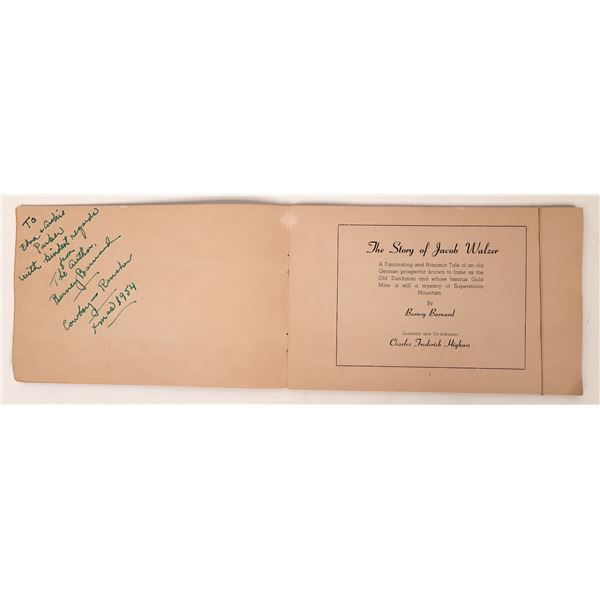 To
Edna & Archie
Parker
with kindest regards
from
The Author,
Barney Barnard
Cowboy - Rancher
Xmas 1954
The Story of Jacob Walzer
A Fascinating and Romantic Tale of an old
German prospector known to fame as the
Old Dutchman and whose famous Gold
Mine is still a mystery of Superstition
Mountain
By
Barney Barnard
Illustrator and Co-ordinator
Charles Frederick Higham
1